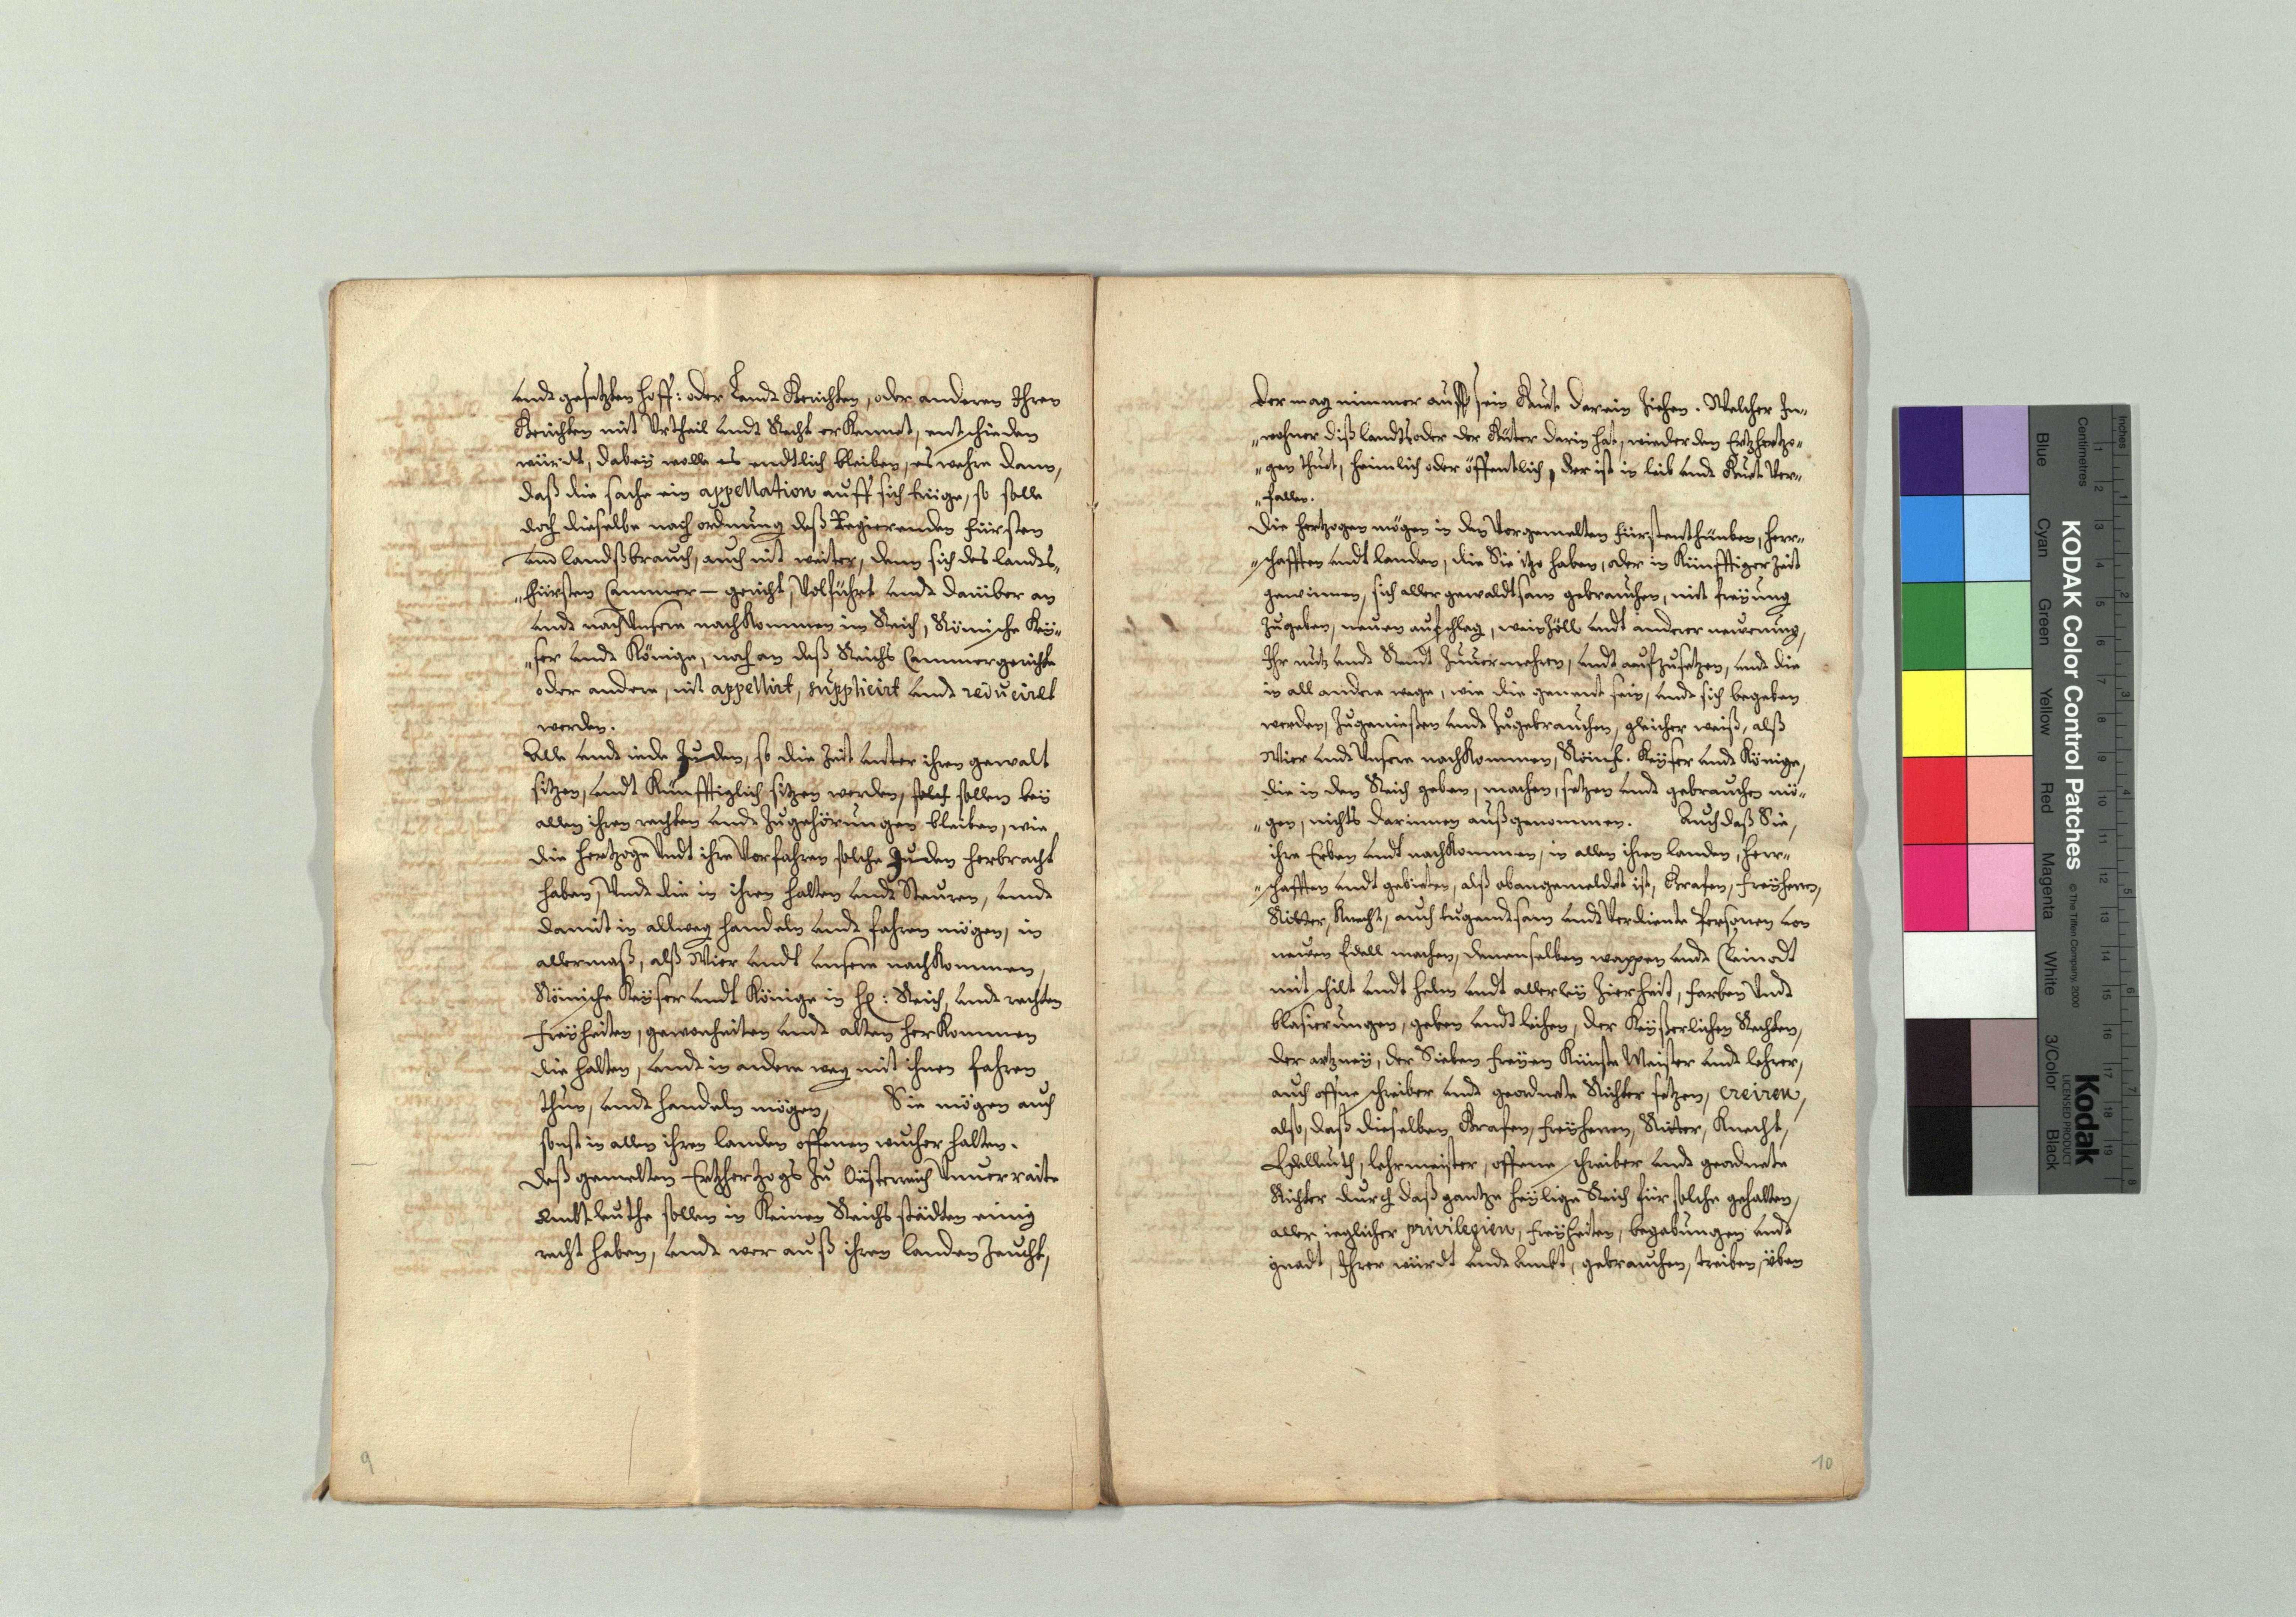 undt gesetzten Hoff: oder Landt Gerichten, oder anderen Ihren
Gerichten mit Vrtheil undt Recht erKennet, entschieden
würdt, dabey wolle es endtlich bleiben, es wehre dann,
daß die sache ein appellation auff sich trüge, so solle
doch dieselbe nach ordnung deß Regierenden Fürsten
und landßbrauch, auch nit weiter, dann sich des landts„
„Fürsten Cammer – gericht, Volführt undt darüber an
undt nach Unsere nachKommen im Reich, Römische Key„
„ser undt Könige, noch an deß Reichs Cammergerichte
oder andere, nit appellirt, supplicirt undt reduciret
werden.
Alle undt iede Juden, so die Zeit unter ihren gewalt
sitzen, undt Künfftiglich sitzen werden, sollen bey
allen ihren rechten undt Zugehörungen bleiben, wie
die Hertzoge Undt ihre Vorfahren solche Juden herbracht
haben, Undt die in ihren halten undt Steuren, undt
damit in allweg handeln undt fahren mögen, in
allermaß, alß Wier undt unsere nachKommen,
Römiche Keyser undt Könige in H: Reich, undt rechten
Freyheiten, gewonheiten undt alten herKommen
die halten, undt in andere weg mit ihnen fahren
thun, undt handeln mögen, Sie mögen auch
sonst in allen ihren landen offenen wucher halten.
Deß gemelten Ertzhertzogs zu Oesterreich Unuerraite
Ambtleuthe sollen in Keinen Reichs städten einig
recht haben, undt wer auß ihren landen Zeucht,
der mag nimmer auff sein Guet darein ziehen. Welcher In„
„wohner diß landts oder der Güter darin hat, wieder den Ertzhertzo„
„gen thuet, heimlich oder öffentlich, der ist in leib undt Guet Ver„
„fallen.
Die Hertzogen mögen in den Vorgemelten Fürstenthumben, Herr„
„schafften undt landen, die Sie itzo haben, oder in Künfftiger Zeit
gewinnen, sich aller gewaldtsam gebrauchen, mit freyung
Zugeben, neuen aufschlag, weinzöll undt anderer newerung,
Ihr nutz undt Rendt Zuuermehren, undt aufzusetzen, undt die
in all andere wege, wie die genent sein, undt sich begeben
werden, Zugenießen undt Zugebrauchen, gleicher weiß, alß
Wier undt Unsere nachKommen, Römsch. Keyser undt Könige,
die in den Reich geben, machen, setzen undt gebrauchen mö„
„gen, nichts darinnen außgenommen. Auch daß Sie,
ihre Erben undt nachKommen, in allen ihren landen, Herr„
„schafften undt gebieten, alß obangemeldet ist, Grafen, Freyherren,
Ritter, Knecht, auch tugendtsam undt Verdiente Personen von
neuen Edell machen, denenselben wappen undt Cleinodt
mit schilt undt helm undt allerley Zierheit, farben Undt
blasierungen, geben undt leihen, der Keyserlichen Rechten,
der artzney, der Sieben Freyen Künste Meister undt lehrer,
auch offne schreiber undt geordnete Richter setzen, creiren,
also, daß dieselben Grafen, Freyherren, Ritter, Knecht,
Edelleuth, lehrmeister, offene schreiber undt geordnete
Richter durch daß gantze heylige Reich für solche gehalten,
aller ieglicher privilegien, Freyheiten, begabungen undt
gnadt, Ihrer würdt undt Ambt, gebrauchen, treiben, üben
9
10
Inches
Centimetres
KODAK Color Control Patches
© The Tiffen Company, 2000
Kodak
LICENSED PRODUCT
Blue
Cyan
Green
Yellow
Red
Magenta
White
3/Color
Black